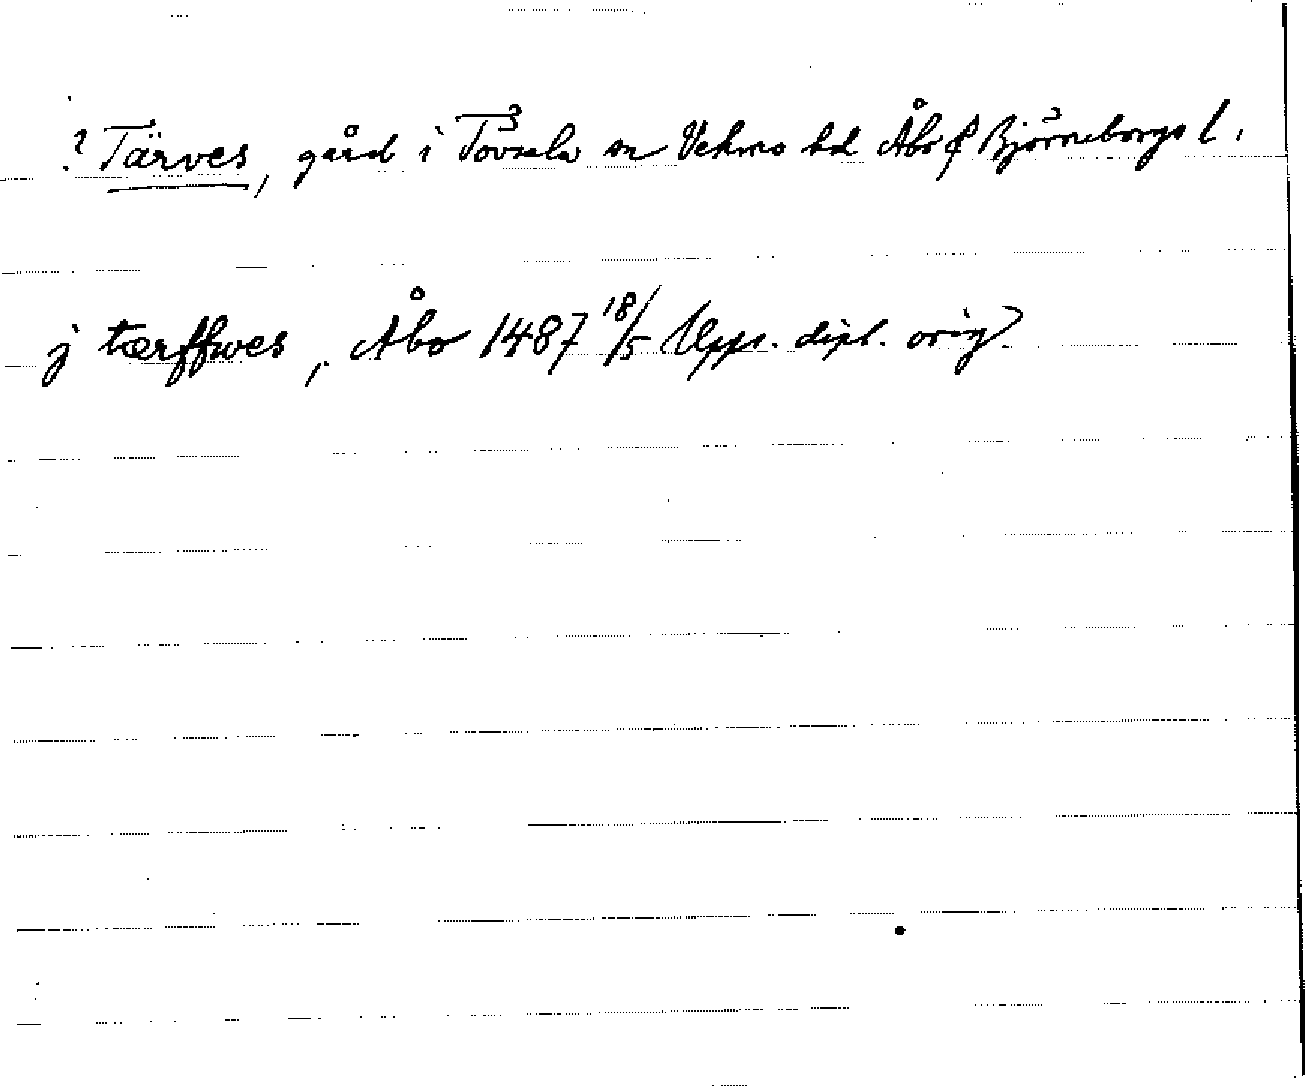 ? Tärves, gård i Tövsala sn Vehmo hd Åbo & Björneborgs l.
j tærffwes, Åbo 1487 18/5 Upps. dipl. orig.